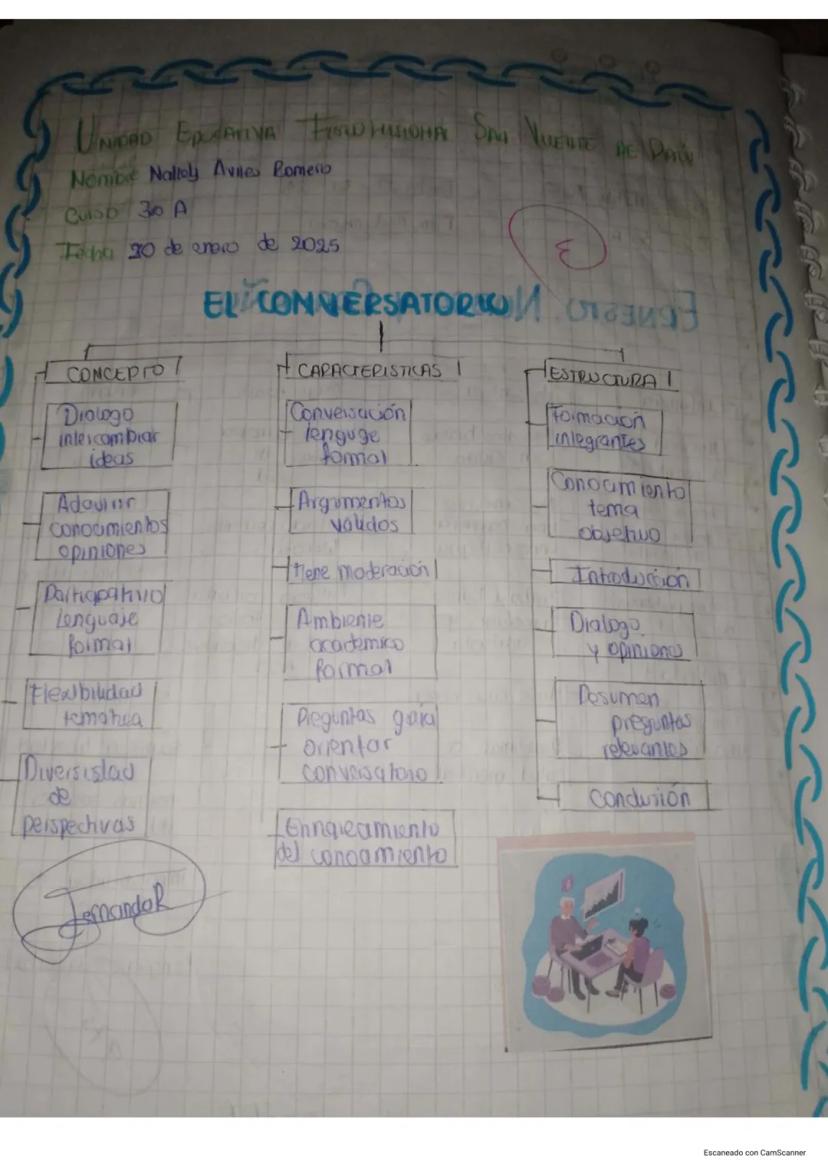 UNIDAD EDUCATIVA FISCOMISIONAL SAN VICENTE DE PAÚL
Nombre Nallely Aviles Romero
Curso 3o A
Fecha 30 de enero de 2025
3
EL CONVERSATORIO
CONCEPTO
Dialogo
intercambiar
ideas
Adquirir
conocimientos
opiniones
Participativo
Lenguaje
formal
Flexibilidad
tematica
Diversistad
de
perspectivas
CARACTERISTICAS
Conversación
lenguge
formal
Argumentos
validos
tiene moderación
Ambiente
academico
formal
Preguntas guia
orientar
conversatorio
Enriquecamiento
del conocimiento
ESTRUCTURA
Formación
integrantes
Conocimiento
tema
objetivo
Introducción
Dialogo
y opiniones
Resumen
preguntas
relevantes
Conclusión
FernandaR
Escaneado con CamScanner